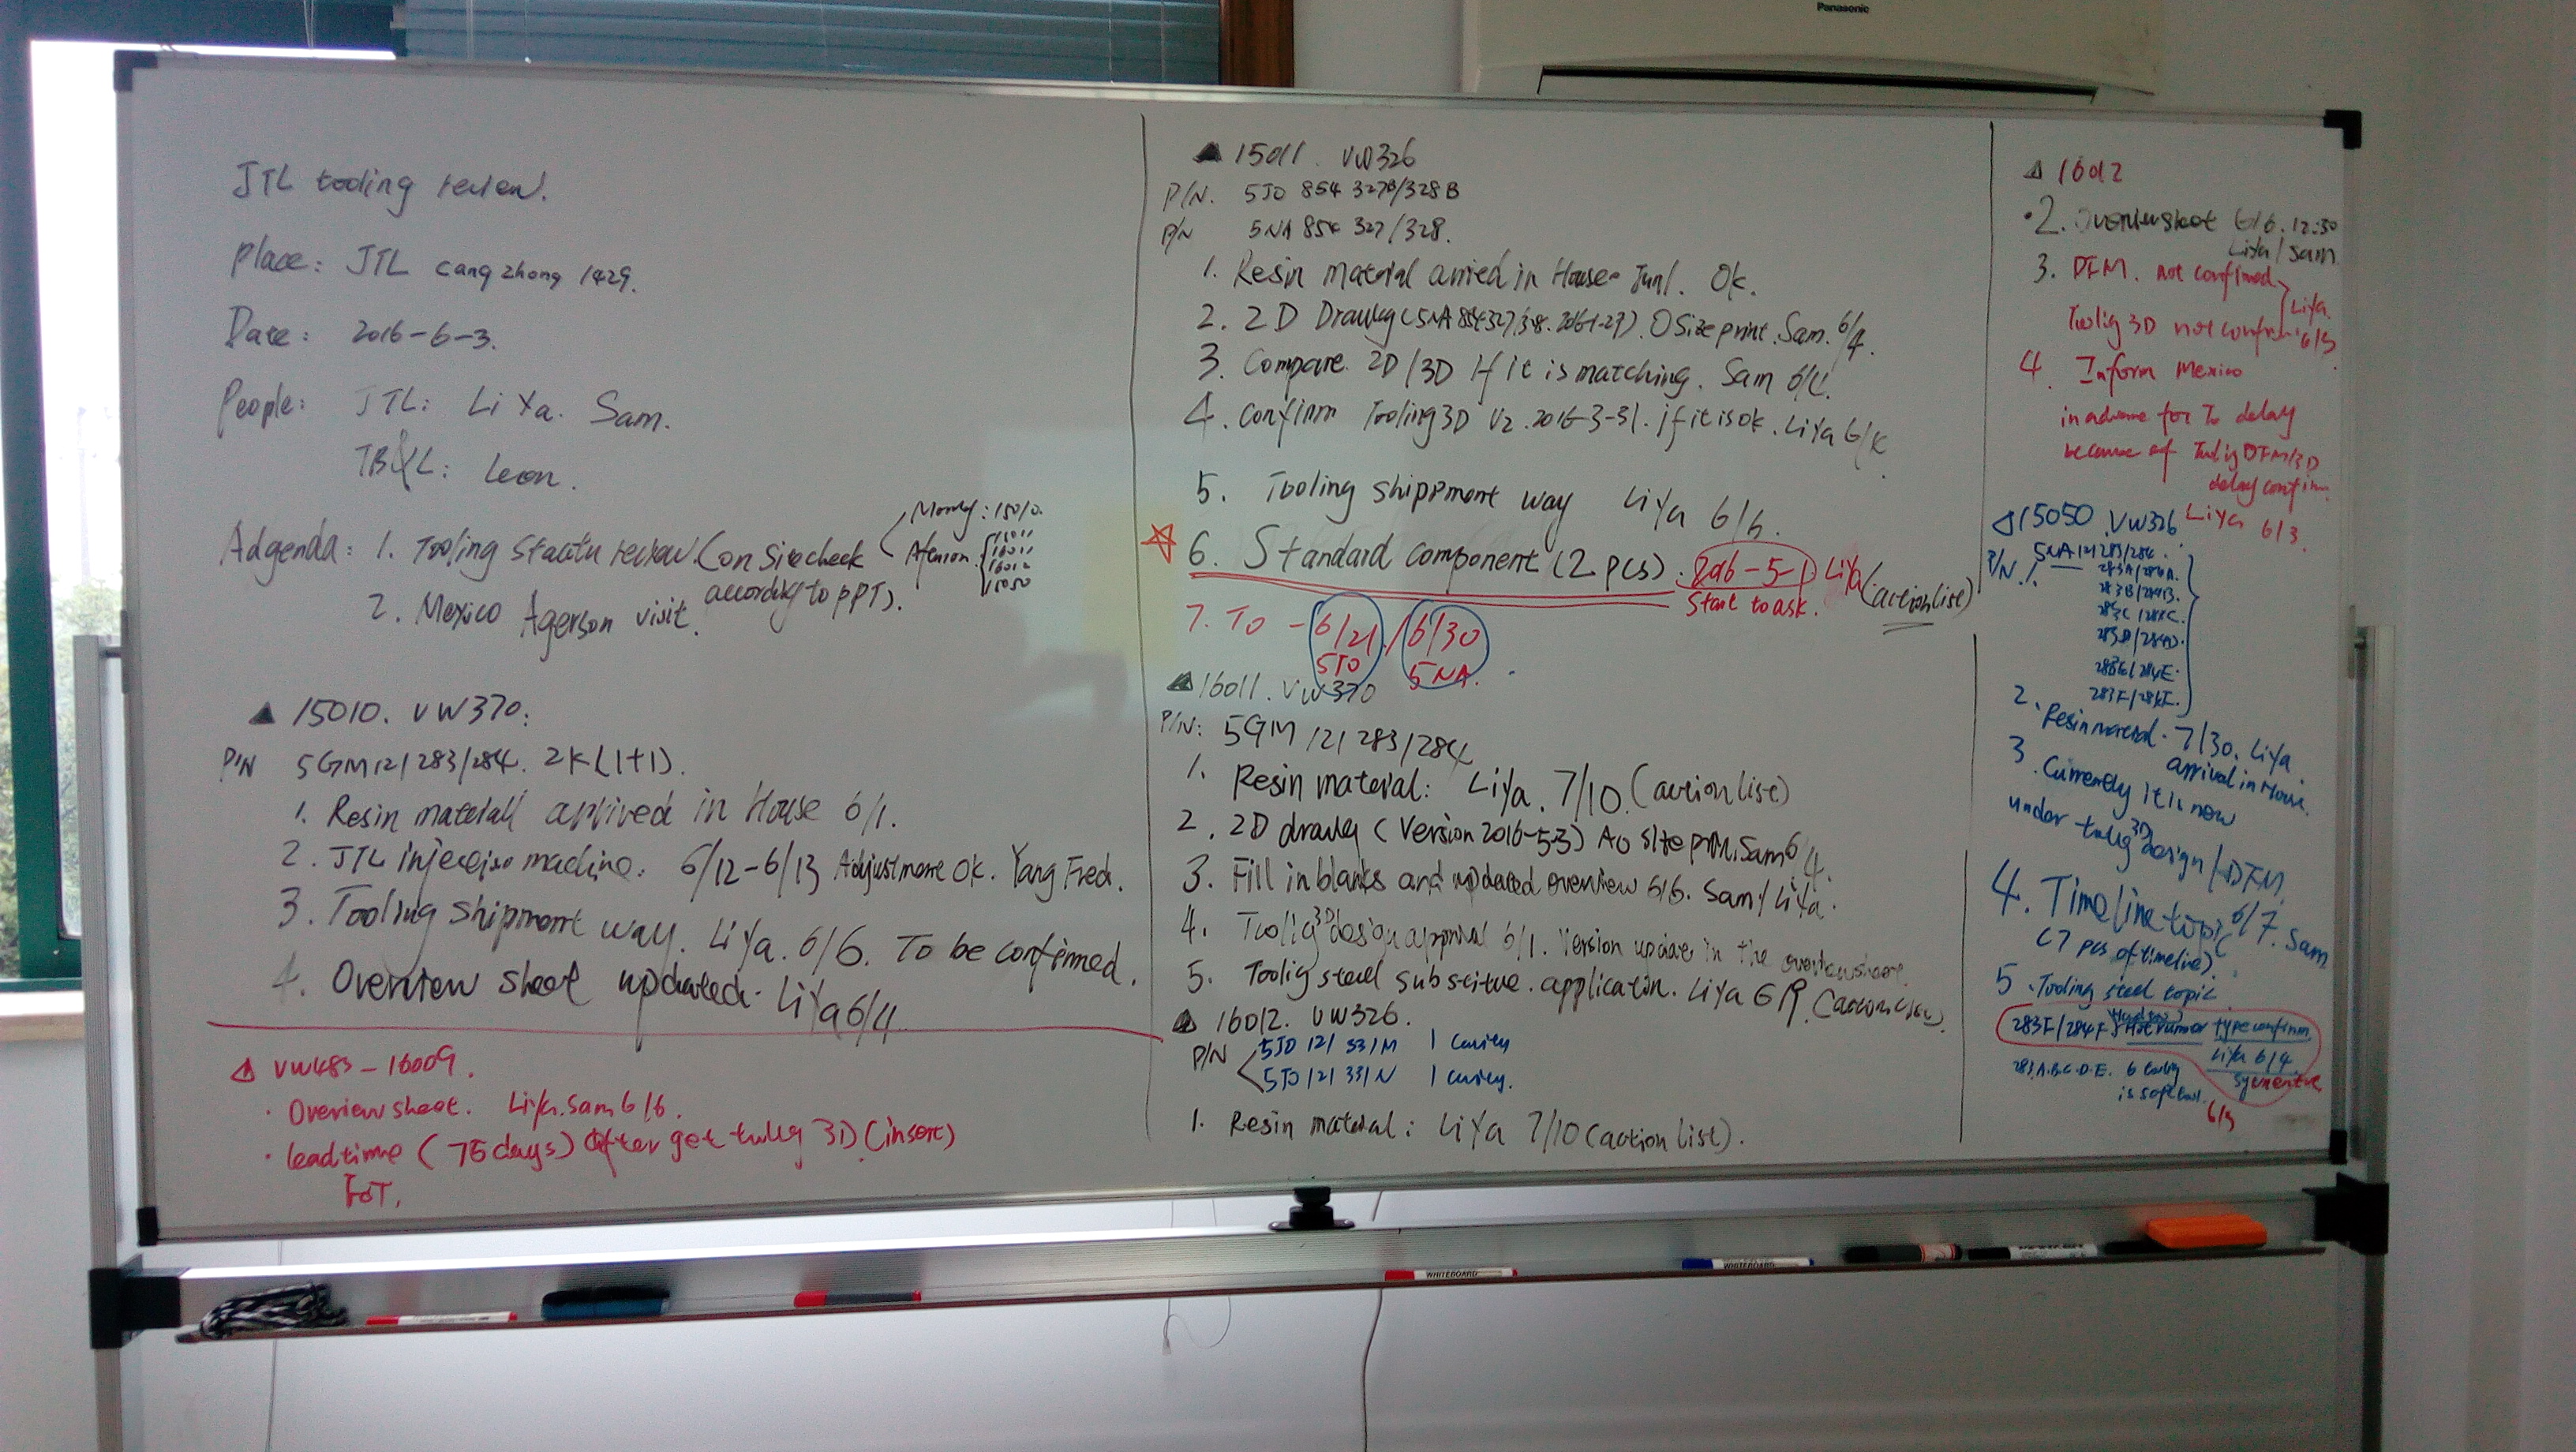 Panasonic
JTL tooling review.
Place: JTL cangzhong 1429.
Date: 2016-6-3.
People: JTL: LiYa. Sam.
TB&L: Leon.
Adgenda: 1. Tooling review (on sitecheck
according to PPT).
15010.
15011
16011
16012
15050
2. Mexico Agerson visit.
▲ 15010. VW370:
P/N 5GM 121 283/284. 2K(1+1).
1. Resin material arrived in House 6/1.
2. JTL machine. 6/12-6/13 Adjustment ok. Yang Fred.
3. Tooling shipment way. LiYa. 6/6. To be confirmed.
4. Overview sheet updated. LiYa 6/4
△ VW483-16009.
· Overview sheet. LiYa. Sam 6/6.
· leadtime (75 days) after get 3D (insert)
FOT.
▲ 15011. VW326
P/N. 5JO 854 327B/328B
P/N 5NA 854 327/328.
1. Resin material arrived in House Jun1. Ok.
2. 2D Drawing 0 Size print. Sam. 6/4.
3. Compare 2D/3D If it is matching. Sam 6/4.
4. Confirm Tooling 3D V2. 2016-3-31. if it is ok. LiYa 6/
5. Tooling shippment way LiYa 6/6.
☆ 6. Standard component (2 pcs). LiYa (action list)
Start to ask.
7. TO - 6/21 / 6/30
5JO 5NA.
▲ 16011. VW370
P/N: 5GM 121 283/284
1. Resin material: LiYa. 7/10. (action list)
2. 2D drawing (Version 2016-5-3) A0 size print. Sam 6/4.
3. Fill in blanks and updated overview 6/6. Sam/LiYa.
4. 3D design approval 6/1. Version update in the overview sheet.
5. steel application. LiYa
▲ 16012. VW326.
P/N 5JO 121 331M 1 cavity
5JO 121 331N 1 cavity.
1. Resin material: LiYa 7/10 (action list).
△ 16012
·2. Overview sheet 6/6. 12:30
LiYa/Sam
3. DFM. not confirmed
3D not confirm
LiYa.
6/3
4. Inform Mexico
in advance for TO delay
because of DFM/3D
delay confirm.
LiYa 6/3.
△ 15050 VW326
P/N 1. 5NA 121 283/284.
283A/284A.
283B/284B.
283C/284C.
283D/284D.
283E/284E.
283F/284F.
2. Resin material. 7/30. LiYa.
arrival in House.
3. Currently it is now
under 3D design/DFM.
4. Timeline topic 6/7. Sam
(7 pcs of timeline)
5. Tooling steel topic
283F/284F Hot runner type confirm
LiYa 6/4
283.A.B.C.D.E. 6
is soft
6/3
WHITEBOARD
WHITEBOARD